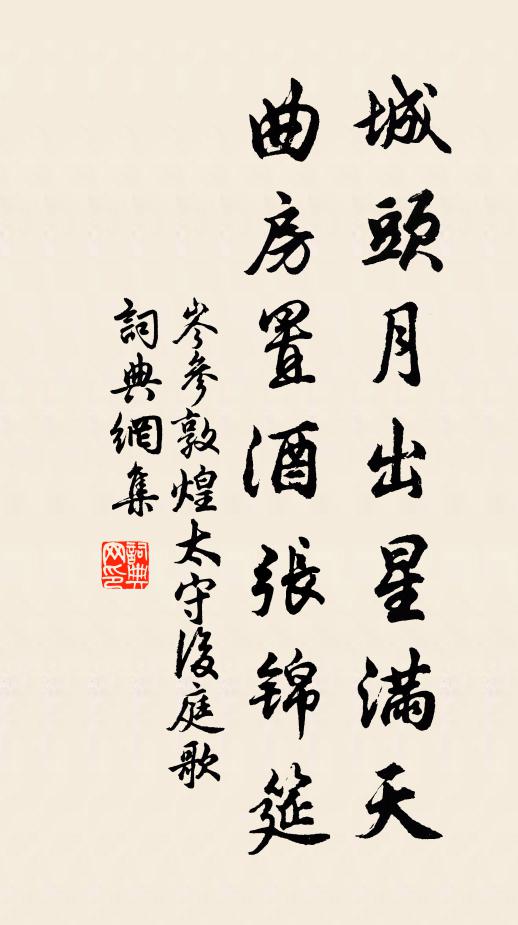 城頭月出星滿天
曲房置酒張錦筵
岑參敦煌太守後庭歌
詞典網集
詞典网印